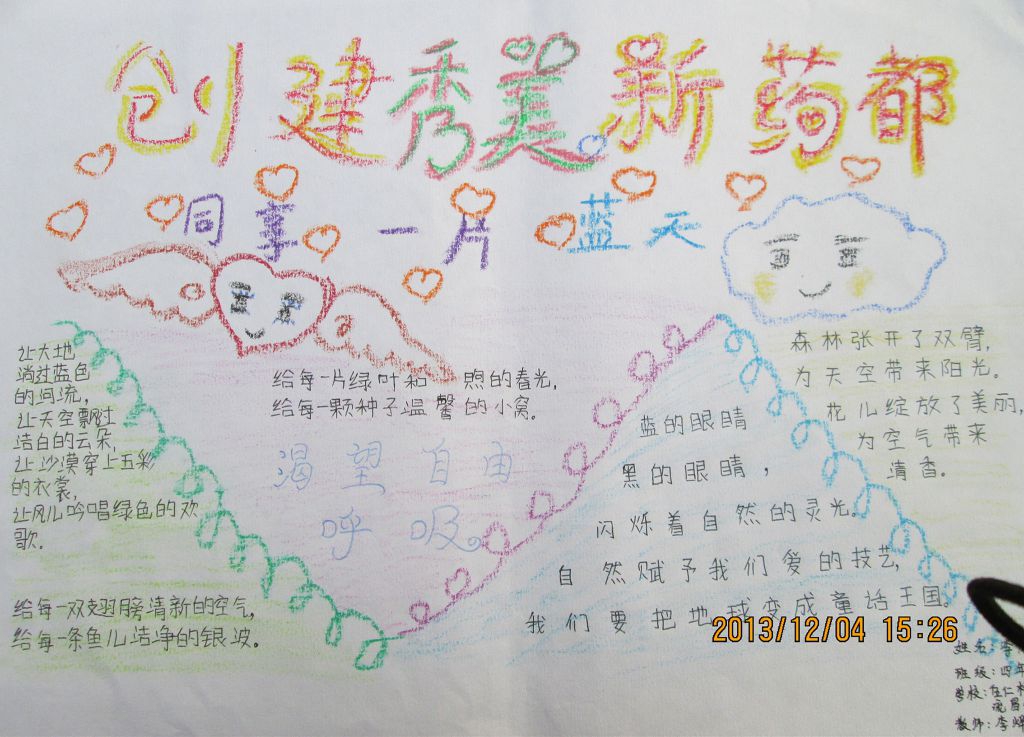 创建秀美新药都
同享一片蓝天
让大地
淌过蓝色
的河流,
让天空飘过
洁白的云朵,
让沙漠穿上五彩
的衣裳,
让风儿吟唱绿色的欢
歌.
给每一双翅膀清新的空气,
给每一条鱼儿洁净的银波。
给每一片绿叶和 煦的春光,
给每一颗种子温馨的小窝。
渴望自由
呼吸。
蓝的眼睛
黑的眼睛,
闪烁着自然的灵光。
自然赋予我们爱的技艺,
我们要把地球变成童话王国。
森林张开了双臂,
为天空带来阳光。
花儿绽放了美丽,
为空气带来
清香。
2013/12/04 15:26
姓名:李
班级:四年
学校:在仁
教师:李